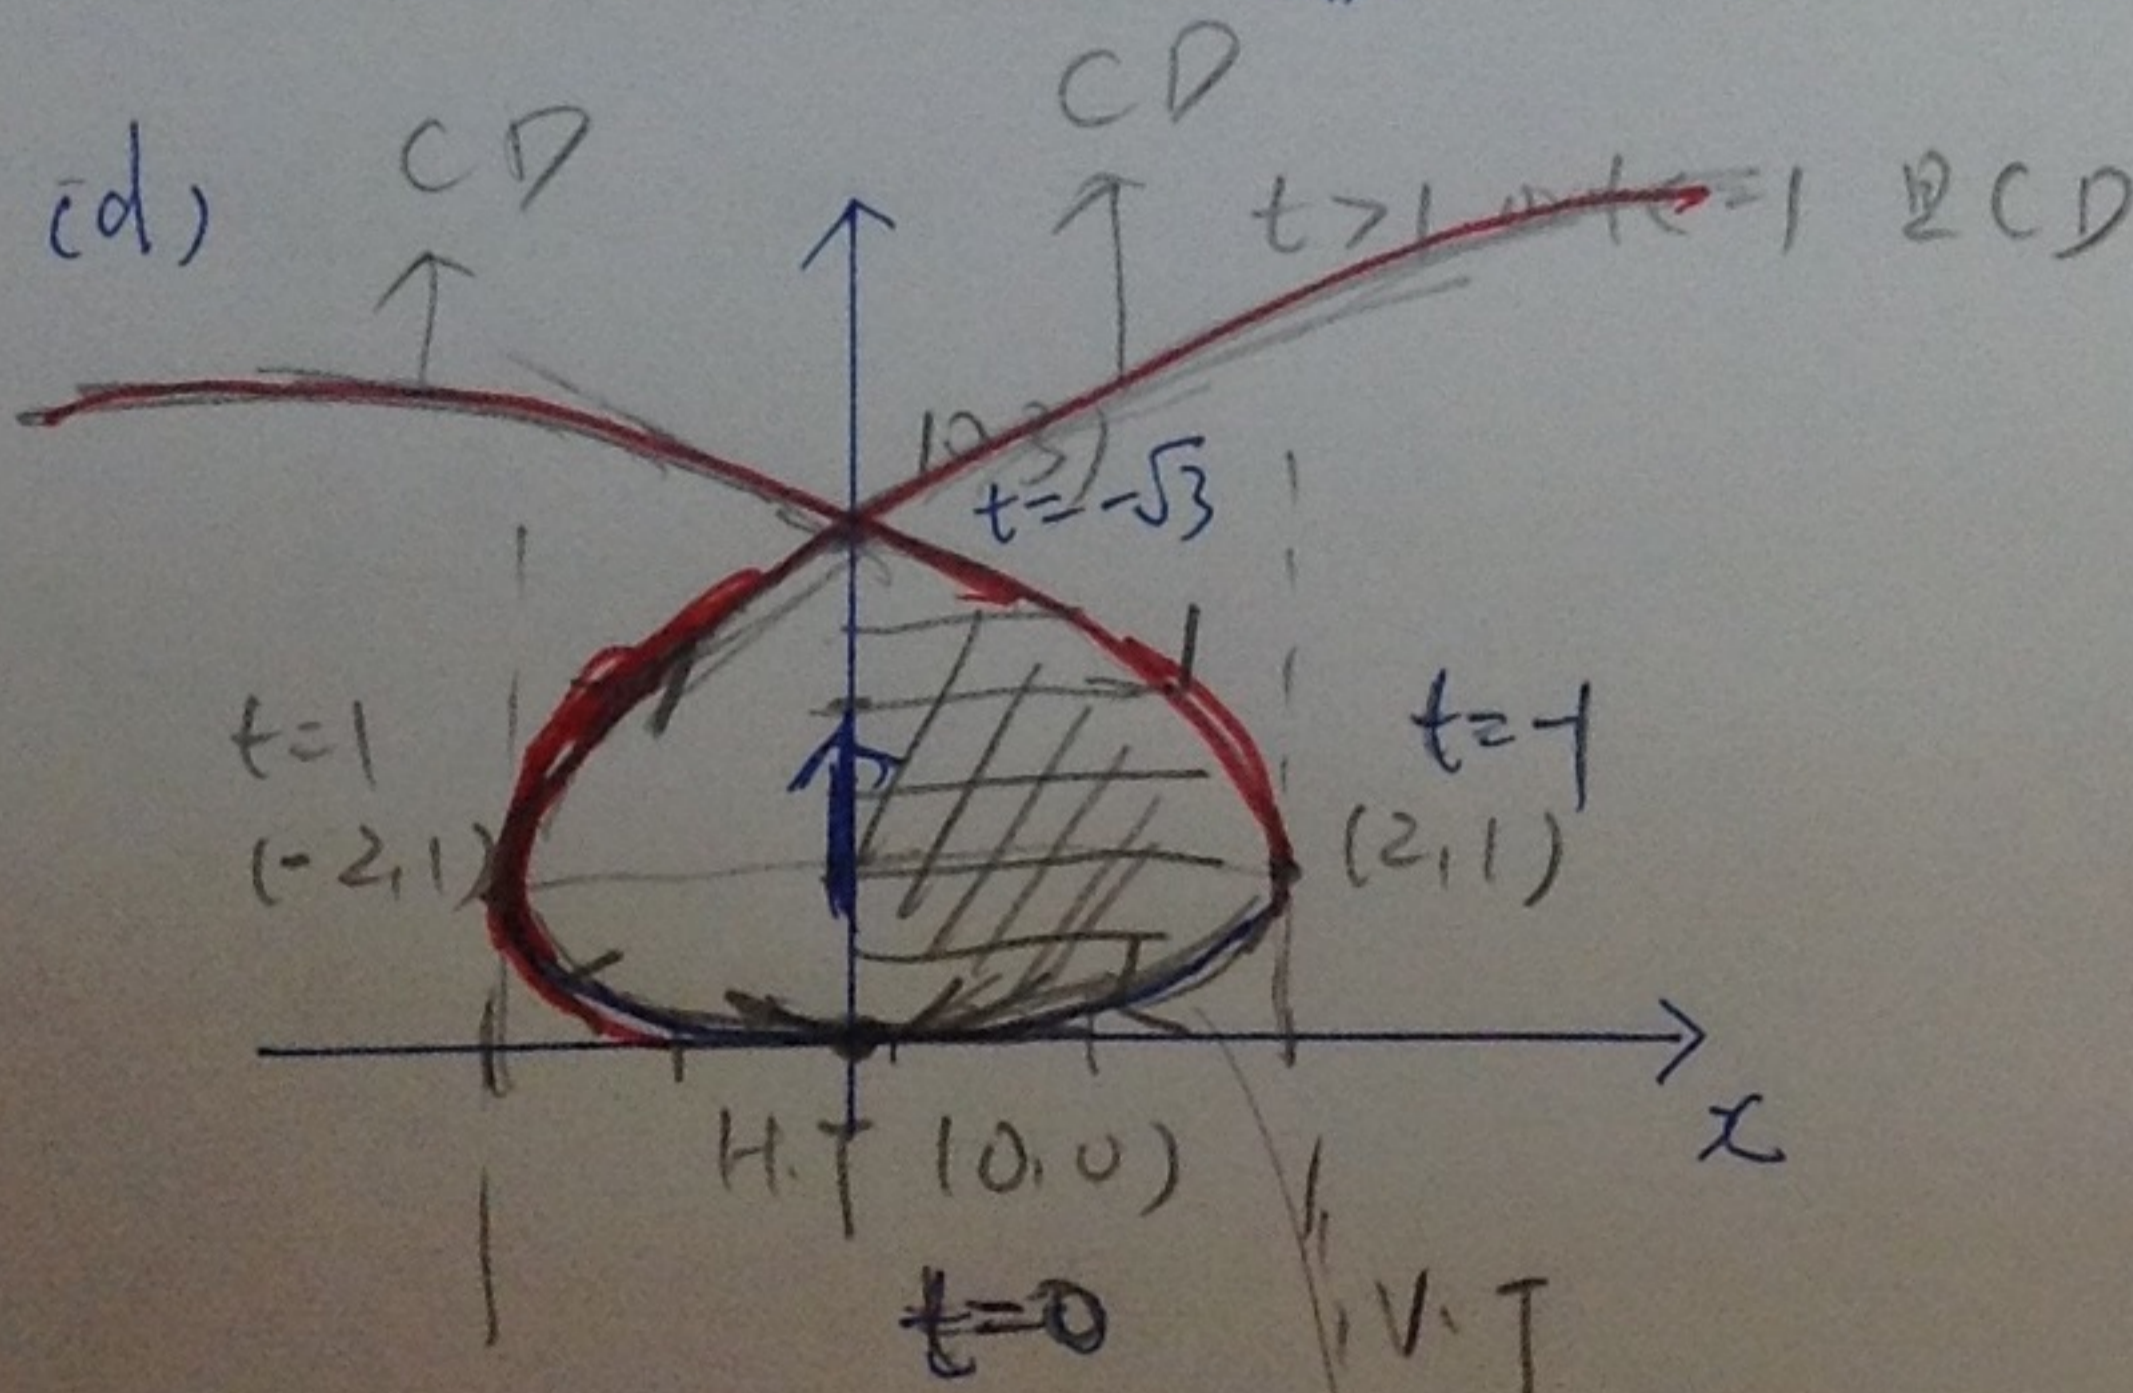 (d)
CD
CD
t>1 t<-1 且CD
(0,3)
t=-√3
t=1
(-2,1)
t=-1
(2,1)
x
H.T (0,0)
t=0
V.T